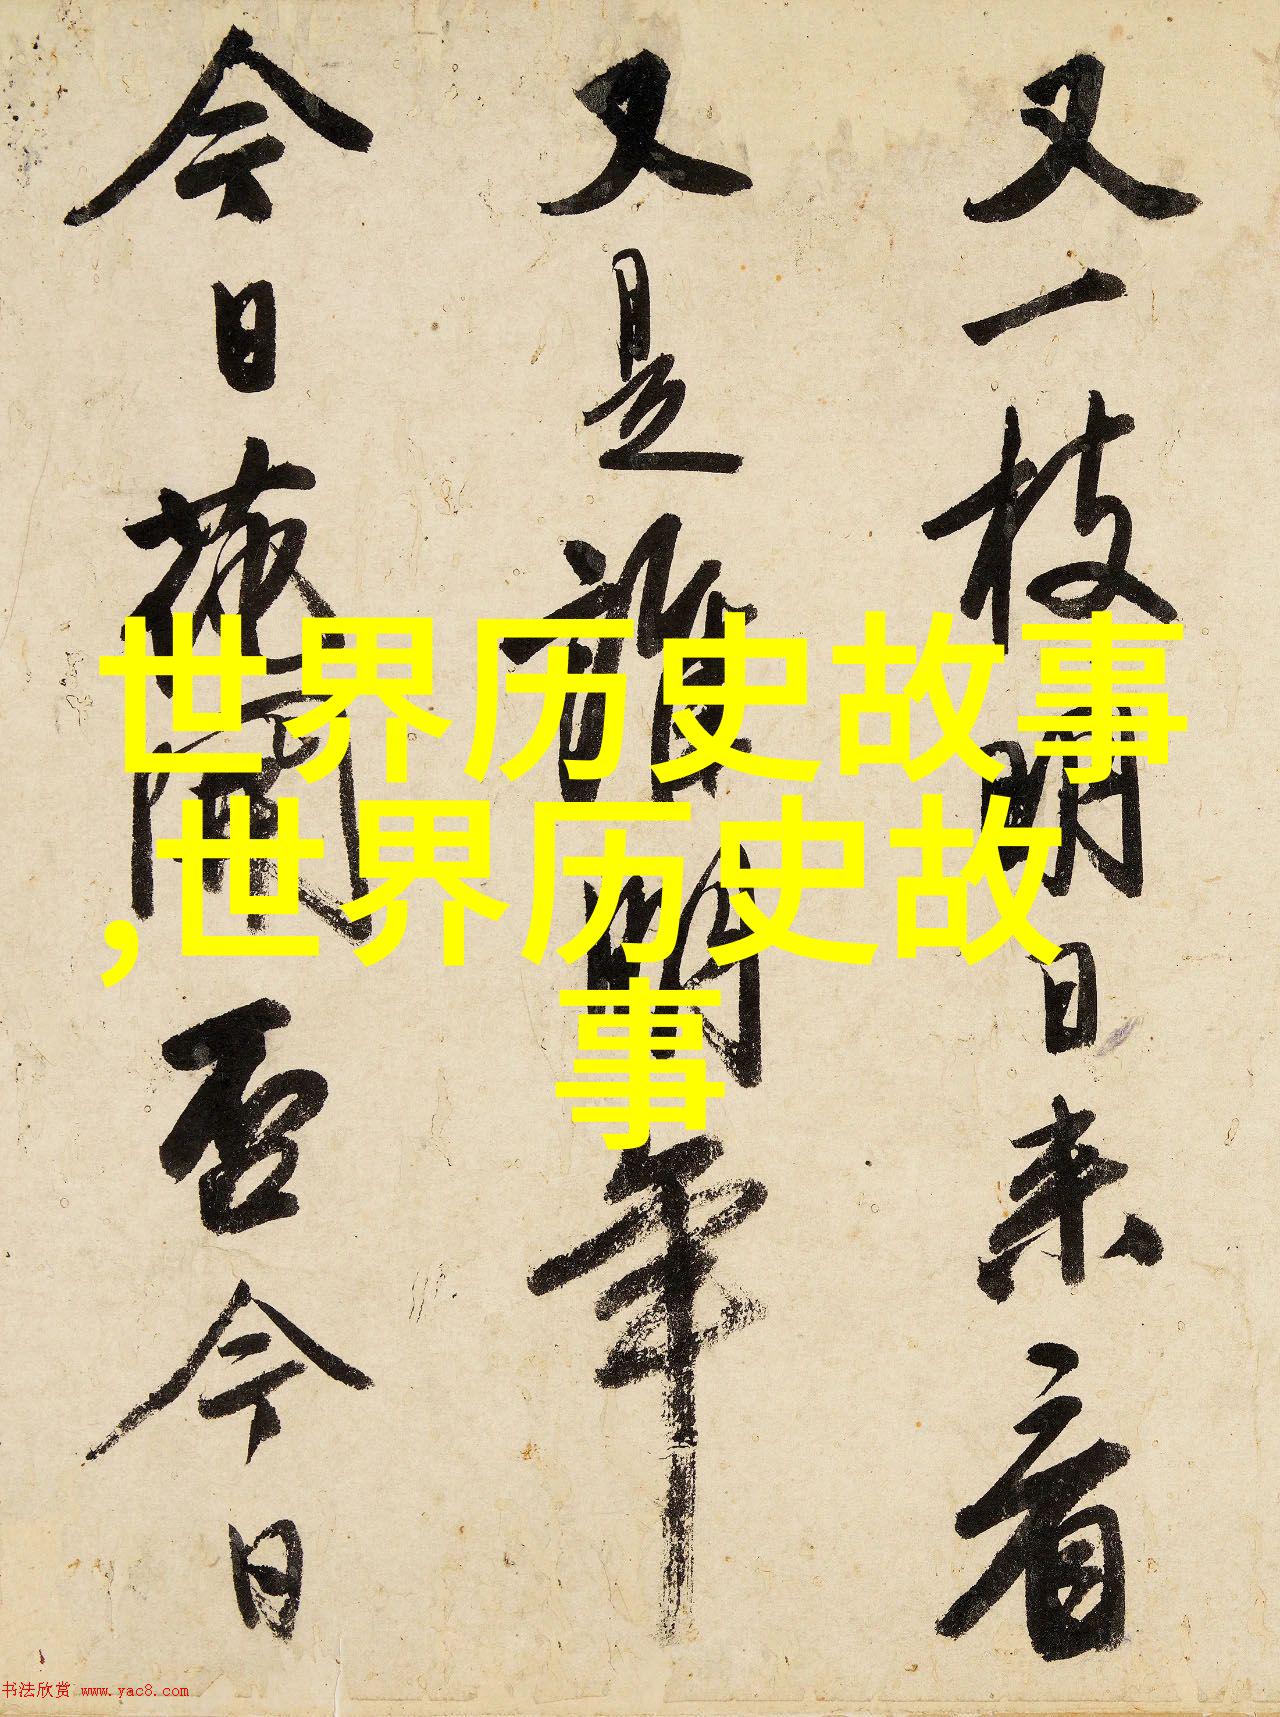 又一枝明日来看
又是誰明年
今日花開否今日
世界历史故事
,世界历史故
事
书法欣赏 www.yac8.com